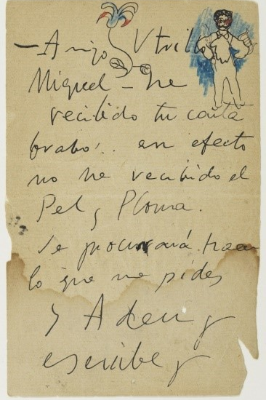 — Amigo Utrillo
Miguel – he
recibido tu carta
brabo... en efecto
no he recibido el
Pel y Ploma.
Se procurará hacer
lo que me pides
y Adeu y
escribe y